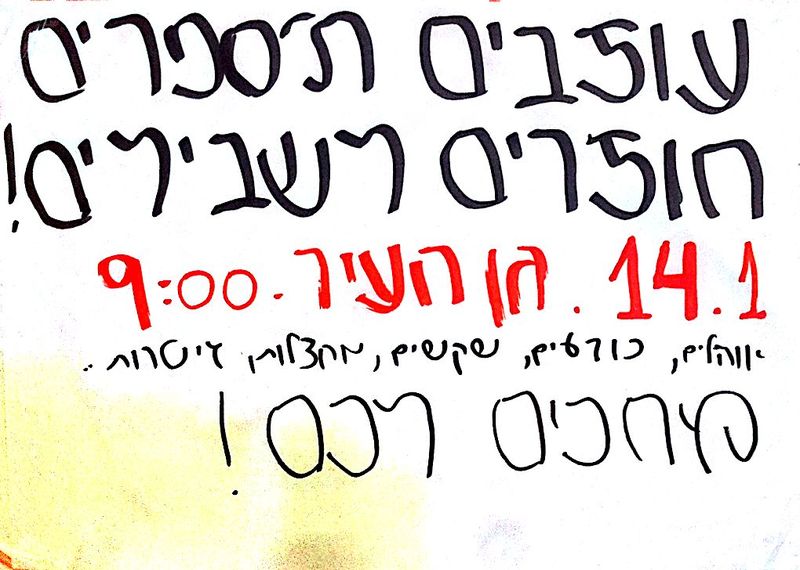 עוזבים ת׳ספרים
חוזרים לשבילים!
14.1. גן העיר. 9:00
אוהלים, כורעים, שקשים, מקצלות, גיטרות.
מחכים לכם!